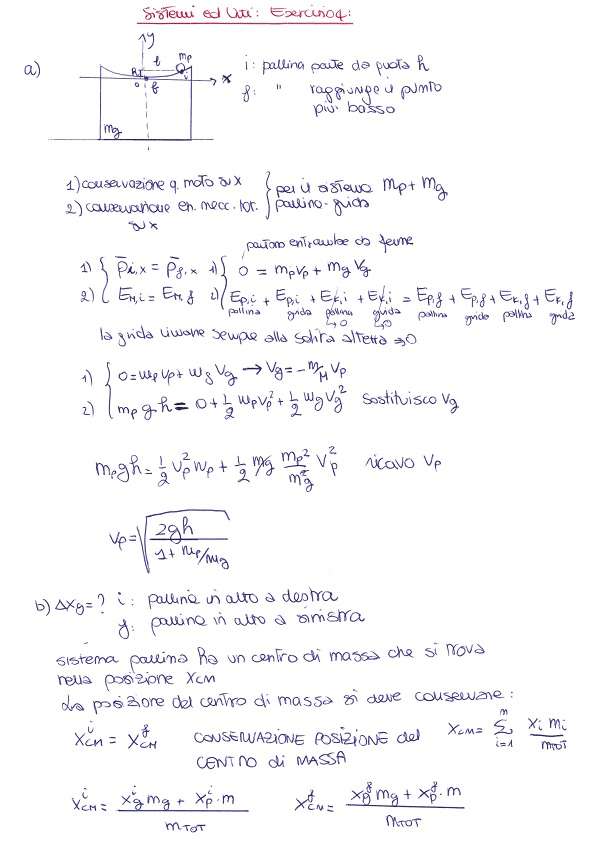 Sistemi ed Urti: Esercizio 4:
a)
y
x
mp
i
f
o
mg
i: pallina parte da quota h
f: " raggiunge il punto
più basso
1) conservazione q. moto su x
2) conservazione en. mecc. tot.
su x
per il sistema mp + mg
pallina-guida
partono entrambe da ferme
1) P̄i,x = P̄f,x 1) 0 = mpvp + mg Vg
2) EM,i = EM,f 2) Ep,i + Ep,i + Ek,i + Ek,i = Ep,f + Ep,f + Ek,f + Ek,f
pallina guida pallina guida pallina guida pallina guida
→0 →0
la guida rimane sempre alla solita altezza →0
1) 0 = mp vp + mg Vg → Vg = -m/M Vp
2) mp g h = 0 + 1/2 mp Vp² + 1/2 mg Vg² sostituisco Vg
mp g h = 1/2 Vp² mp + 1/2 mg mp²/mg² Vp² ricavo Vp
Vp = √(2gh / 1 + mp/mg)
b) Δxg = ? i: pallina in alto a destra
f: pallina in alto a sinistra
sistema pallina ha un centro di massa che si trova
nella posizione XCM
La posizione del centro di massa si deve conservare:
XⁱCM = XᶠCM CONSERVAZIONE POSIZIONE del
CENTRO di MASSA
XCM = Σ i=1 n xi mi / mTOT
XⁱCM = xⁱg mg + xⁱp · m / mTOT XᶠCM = xᶠg mg + xᶠp · m / mTOT